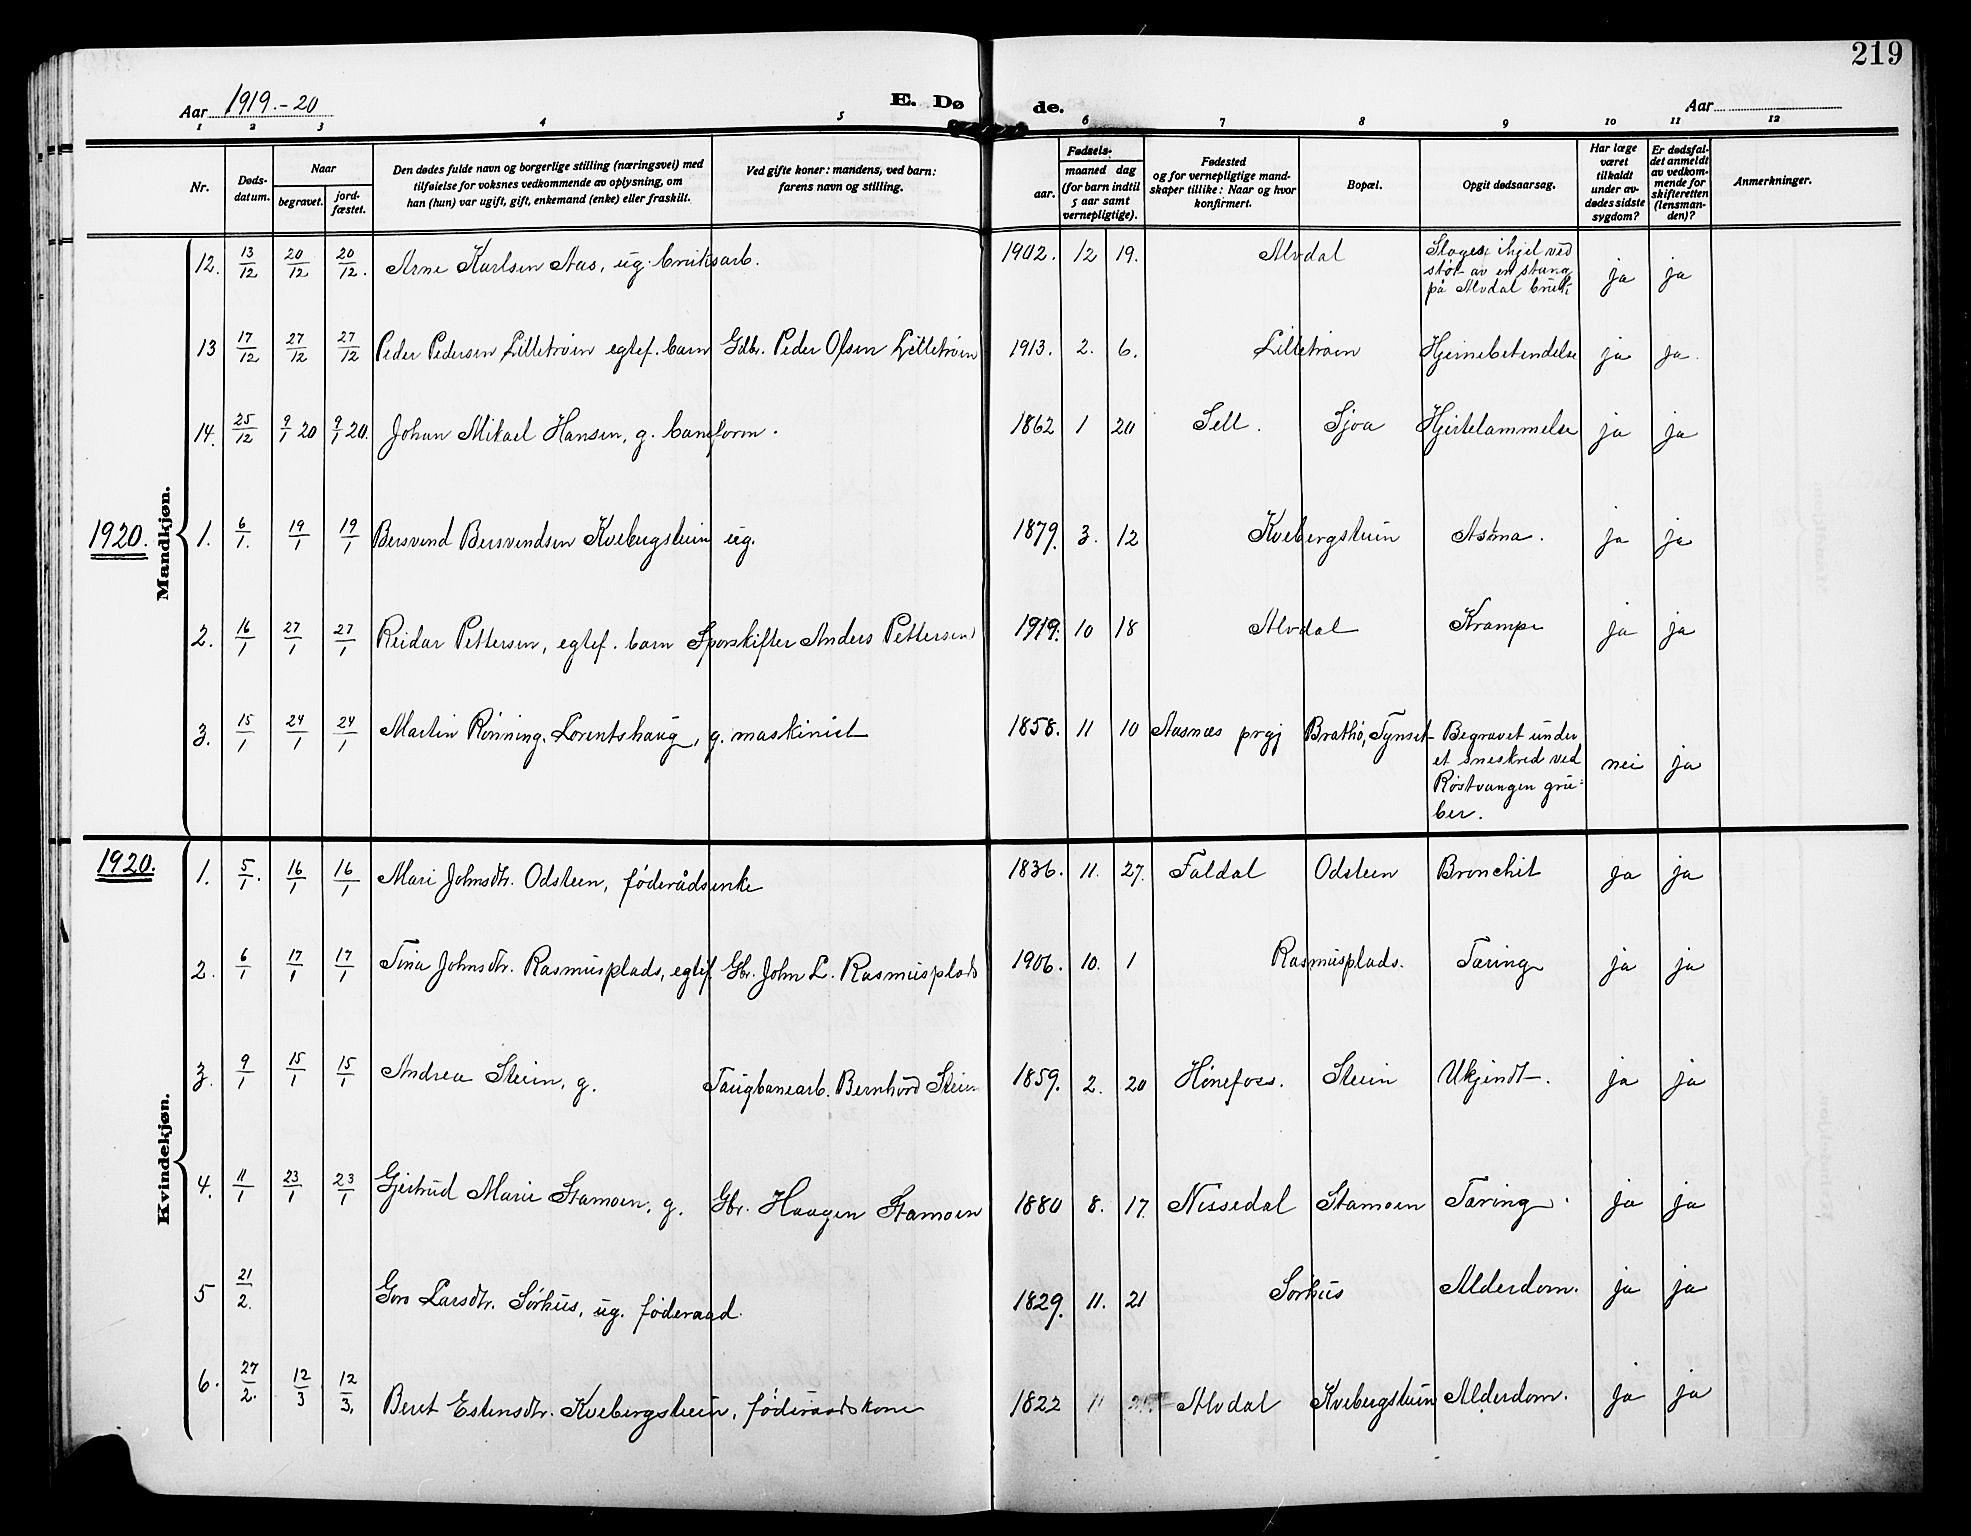 219
Aar 1919.-20
E. Dø de.
Aar
1 2 3 4 5 6 7 8 9 10 11 12
Nr.
Døds-
datum.
Naar
begravet.
jord-
fæstet.
Den dødes fulde navn og borgerlige stilling (næringsvei) med
tilføielse for voksnes vedkommende av oplysning, om
han (hun) var ugift, gift, enkemand (enke) eller fraskilt.
Ved gifte koner: mandens, ved barn:
farens navn og stilling.
Fødsels-
aar.
maaned dag
(for barn indtil
5 aar samt
vernepligtige).
Fødested
og for vernepligtige mand-
skaper tillike: Naar og hvor
konfirmert.
Bopæl.
Opgit dødsaarsag.
Har læge
været
tilkaldt
under av-
dødes sidste
sygdom?
Er dødsfal-
det anmeldt
av vedkom-
mende for
skifteretten
(lensman-
den)?
Anmerkninger.
Mandkjøn.
12. 13/12 20/12 20/12. Arne Karlsen Aas, ug. bruksarb. 1902. 12 19. Alvdal Sloges ihjel ved
støt av en stang
på Alvdal bruk. ja ja
13 17/12 27/12 27/12 Peder Pedersen Lilletrøen egtef. barn Gdbr. Peder Olsen Lilletrøen 1913. 2. 6. Lilletrøen Hjernebetendelse ja ja.
14. 25/12 9/1 20 9/1 20. Johan Mikael Hansen, g. baneform. 1862 1 20 Sell. Sjoa Hjertelammelse ja ja
1920.
1. 6/1. 19/1 19/1 Bersvend Bersvendsen Kvebergsteien ug. 1879. 3. 12 Kvebergsteien Astma. ja ja
2. 16/1 27/1 27/1 Reidar Pettersen, egtef. barn Sporskifter Anders Pettersen 1919. 10 18 Alvdal Krampe ja ja
3. 15/1 24/1 24/1 Martin Rønning. Lorentshaug, g. maskinist 1858. 11 10 Aasnæs prgj Brathø, Tynset Begravet under
et sneskred ved
Røstvangen gru-
ber. nei ja
1920.
Kvindekjøn.
1. 5/1. 16/1 16/1 Mari Johnsdtr. Odsteen, føderådsenke 1836. 11. 27. Faldal Odsteen Bronchit ja ja
2. 6/1 17/1 17/1 Tina Johnsdtr. Rasmusplads, egtef Gbr. John L. Rasmusplads 1906. 10. 1 Rasmusplads. Tæring ja ja
3. 9/1 15/1 15/1 Andrea Steien, g. Taugbanearb. Bernhard Steien 1859. 2. 20 Hønefoss. Steien Ukjendt. ja ja
4. 11/1 23/1 23/1 Gjertrud Marie Stamoen, g. Gbr. Haagen Stamoen 1880 8. 17. Nissedal Stamoen Tæring. ja ja
5 21/2. Goro Larsdtr. Sørhus, ug. føderaad. 1829. 11. 21 Sørhus Alderdom. ja ja
6. 27/2. 12/3 12/3. Beret Estensdtr. Kvebergsteien, føderaadskone 1822 11 Alvdal Kvebergsteien Alderdom. ja ja